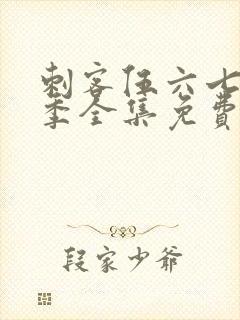 刺客伍六七
季全集免费
段家少爷